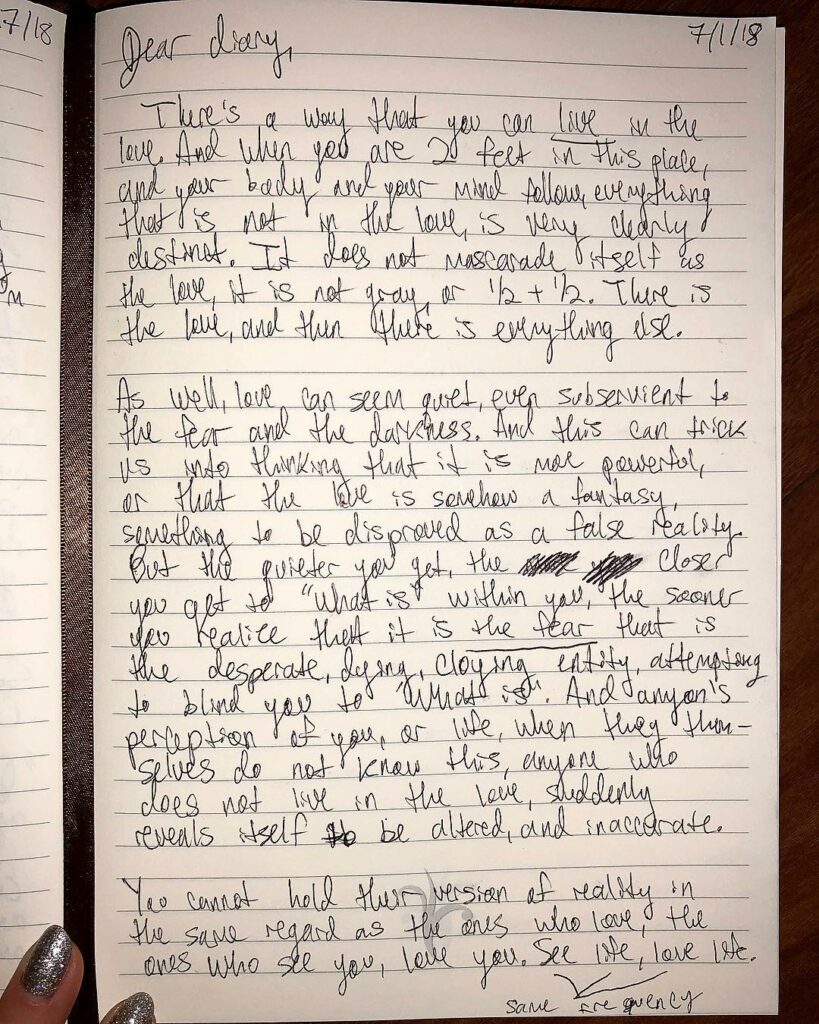 7/18
7/1/18
Dear diary,
There's a way that you can live in the
love. And when you are 2 feet in this place,
and your body and your mind follow, everything
that is not in the love, is very clearly
destinct. It does not mascarade itself as
the love, it is not gray, or 1/2 + 1/2. There is
the love, and then there is everything else.
As well, love can seem quiet, even subservient to
the fear and the darkness. And this can trick
us into thinking that it is more powerful,
or that the love is somehow a fantasy,
something to be disproved as a false reality.
But the quieter you get, the closer
you get to "What is" within you, the sooner
you realize that it is the fear that is
the desperate, dying, cloying entity, attempting
to blind you to "What is". And anyon's
perception of you, or life, when they them-
selves do not know this, anyone who
does not live in the love, suddenly
reveals itself to be altered, and inaccurate.
You cannot hold their version of reality in
the same regard as the ones who love, the
ones who see you, love you. See life, love life.
same frequency